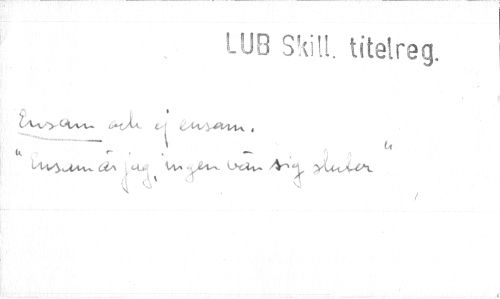 LUB Skill. titelreg.
Ensam och ej ensam.
"Ensam är jag, ingen vän sig sluter"